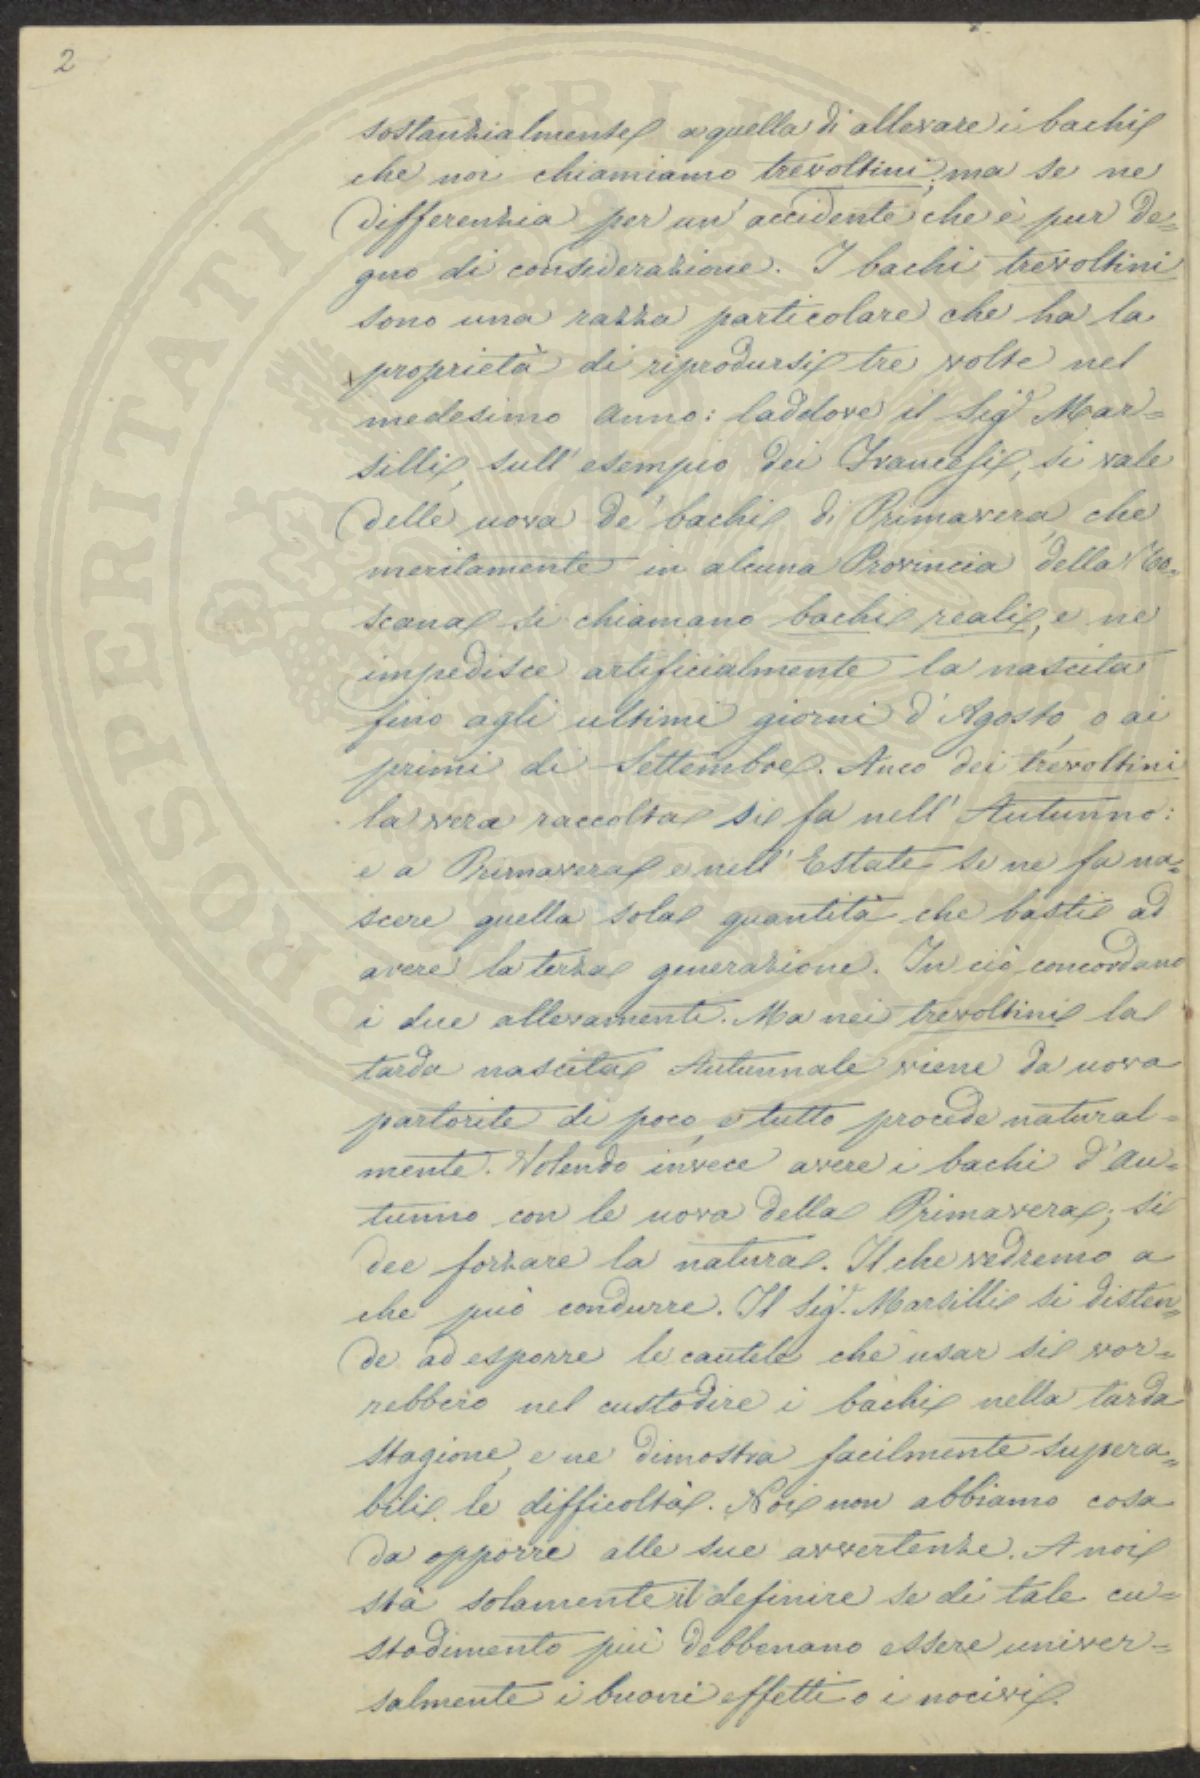 2
sostanzialmente a quella di allevare i bachi
che noi chiamiamo trevoltini; ma se ne
differenzia per un' accidente che è pur de=
gno di considerazione. I bachi trevoltini
sono una razza particolare che ha la
proprietà di riprodursi tre volte nel
medesimo anno: laddove il Sigr Mar=
silli, sull' esempio dei Francesi, si vale
delle uova de' bachi di Primavera, che
meritamente in alcuna Provincia della To=
scana si chiamano bachi reali, e ne
impedisce artificialmente la nascita
fino agli ultimi giorni d' Agosto, o ai
primi di Settembre. Anco dei trevoltini
la vera raccolta si fa nell' Autunno:
e a Primavera e nell' Estate se ne fa na=
scere quella sola quantità che basti ad
avere la terza generazione. In ciò concordano
i due allevamenti. Ma nei trevoltini la
tarda nascita Autunnale viene da uova
partorite di poco, e tutto procede natural=
mente. Volendo invece avere i bachi d' Au=
tunno con le uova della Primavera; si
dee forzare la natura. Il che vedremo a
che può condurre. Il Sigr. Marsilli si disten=
de ad esporre le cautele che usar si vor=
rebbero nel custodire i bachi nella tarda
stagione, e ne dimostra facilmente supera=
bili le difficoltà. Noi non abbiamo cosa
da opporre alle sue avvertenze. A noi
stà solamente il definire se di tale cu=
stodimento più debbonano essere univer=
salmente i buoni effetti o i nocivi.
PROSPERITATI PUBLICAE